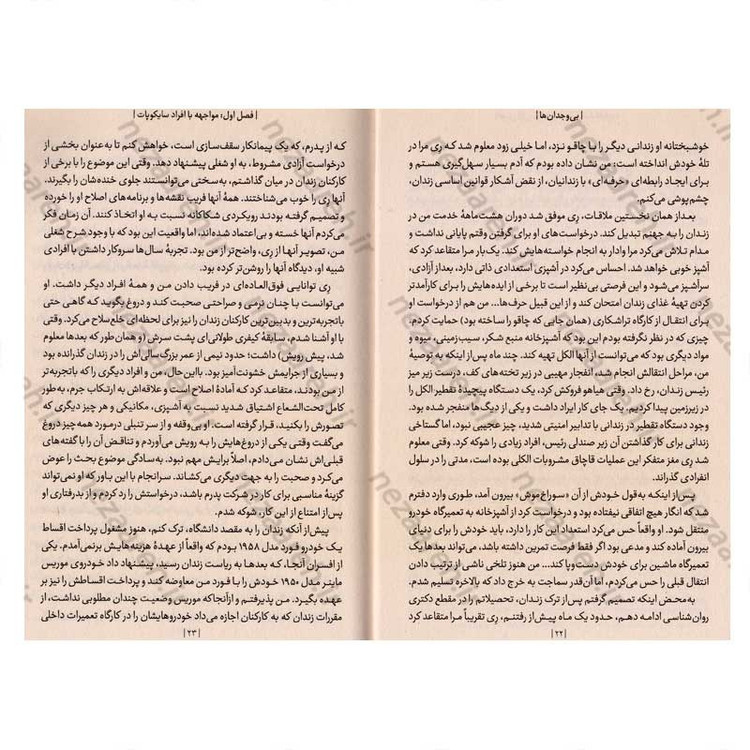 | بی‌وجدان‌ها |
خوشبختانه او زندانی دیگر را با چاقو نزد، اما خیلی زود معلوم شد که ری مرا در
تلهٔ خودش انداخته است؛ من نشان داده بودم که آدم بسیار سهل‌گیری هستم و
برای ایجاد رابطه‌ای «حرفه‌ای» با زندانیان، از نقض آشکار قوانین اساسی زندان،
چشم‌پوشی می‌کنم.
بعد از همان نخستین ملاقات، رِی موفق شد دوران هشت‌ماههٔ خدمت من در
زندان را به جهنم تبدیل کند. درخواست‌های او برای گرفتن وقتم پایانی نداشت و
مدام تلاش می‌کرد مرا وادار به انجام خواسته‌هایش کند. یک‌بار مرا متقاعد کرد که
آشپز خوبی خواهد شد. احساس می‌کرد در آشپزی استعدادی ذاتی دارد، بعد از آزادی،
سرآشپز می‌شود و این فرصتی بی‌نظیر است تا برخی از ایده‌هایش را برای کارآمدتر
کردن تهیهٔ غذای زندان امتحان کند و از این قبیل حرف‌ها... من هم از درخواست او
برای انتقال از کارگاه تراشکاری (همان جایی که چاقو را ساخته بود) حمایت کردم.
چیزی که در نظر نگرفته بودم این بود که آشپزخانه منبع شکر، سیب‌زمینی، میوه و
مواد دیگری بود که می‌توانست از آنها الکل تهیه کند. چند ماه پس از اینکه به توصیهٔ
من، مراحل انتقالش انجام شد، انفجار مهیبی در زیر تخته‌های کف، درست زیر میز
رئیس زندان، رخ داد. وقتی هیاهو فروکش کرد، یک دستگاه پیچیدهٔ تقطیر الکل را
در زیرزمین پیدا کردیم. یک جای کار ایراد داشت و یکی از دیگ‌ها منفجر شده بود.
وجود دستگاه تقطیر در زندانی با تدابیر امنیتی شدید، چیز عجیبی نبود، اما گستاخی
زندانی برای کار گذاشتن آن زیر صندلی رئیس، افراد زیادی را شوکه کرد. وقتی معلوم
شد رِی مغز متفکر این عملیات قاچاق مشروبات الکلی بوده است، مدتی را در سلول
انفرادی گذراند.
پس از اینکه به‌قول خودش از آن «سوراخ‌موش» بیرون آمد، طوری وارد دفترم
شد که انگار هیچ اتفاقی نیفتاده بود و درخواست کرد از آشپزخانه به تعمیرگاه خودرو
منتقل شود. او واقعاً حس می‌کرد استعداد این کار را دارد، باید خودش را برای دنیای
بیرون آماده کند و مدعی بود اگر فقط فرصت تمرین داشته باشد، می‌تواند بعدها یک
تعمیرگاه ماشین برای خودش دست‌وپا کند... من هنوز تلخی ناشی از ترتیب دادن
انتقال قبلی را حس می‌کردم، اما آن‌قدر سماجت به خرج داد که بالاخره تسلیم شدم.
به‌محض اینکه تصمیم گرفتم پس از ترک زندان، تحصیلاتم را در مقطع دکتری
روان‌شناسی ادامه دهم، حدود یک ماه پیش از رفتنم، رِی تقریباً مرا متقاعد کرد
| ۲۲ |
| فصل اول: مواجهه با افراد سایکوپات |
که از پدرم، که یک پیمانکار سقف‌سازی است، خواهش کنم تا به‌عنوان بخشی از
درخواست آزادی مشروط، به او شغلی پیشنهاد دهد. وقتی این موضوع را با برخی از
کارکنان زندان در میان گذاشتم، به‌سختی می‌توانستند جلوی خنده‌شان را بگیرند.
آنها ری را خوب می‌شناختند. همهٔ آنها فریب نقشه‌ها و برنامه‌های اصلاح او را خورده
و تصمیم گرفته بودند رویکردی شکاکانه نسبت به او اتخاذ کنند. آن زمان فکر
می‌کردم آنها خسته و بی‌اعتماد شده‌اند، اما واقعیت این بود که با وجود شرح شغلی
من، تصویر آنها از رِی، واضح‌تر از من بود. تجربهٔ سال‌ها سروکار داشتن با افرادی
شبیه او، دیدگاه آنها را روشن‌تر کرده بود.
رِی توانایی فوق‌العاده‌ای در فریب دادن من و همهٔ افراد دیگر داشت. او
می‌توانست با چنان نرمی و صراحتی صحبت کند و دروغ بگوید که گاهی حتی
باتجربه‌ترین و بدبین‌ترین کارکنان زندان را نیز برای لحظه‌ای خلع‌سلاح می‌کرد. وقتی
با او آشنا شدم، سابقهٔ کیفری طولانی‌ای پشت سرش (و همان‌طور که بعدها معلوم
شد، پیش رویش) داشت؛ حدود نیمی از عمر بزرگ‌سالی‌اش را در زندان گذرانده بود
و بسیاری از جرایمش خشونت‌آمیز بود. بااین‌حال، من و افراد دیگری را که باتجربه‌تر
از من بودند، متقاعد کرد که آمادهٔ اصلاح است و علاقه‌اش به ارتکاب جرم، به‌طور
کامل تحت‌الشعاع اشتیاق شدید نسبت به آشپزی، مکانیکی و هر چیز دیگری که
تصورش را بکنید، قرار گرفته است. او بی‌وقفه و از سر تنبلی درمورد همه چیز دروغ
می‌گفت وقتی یکی از دروغ‌هایش را به رویش می‌آوردم و تناقض آن را با گفته‌های
قبلی‌اش نشان می‌دادم، اصلاً برایش مهم نبود. به‌سادگی موضوع بحث را عوض
می‌کرد و صحبت را به جهت دیگری می‌کشاند. سرانجام با این باور که او نمی‌تواند
گزینهٔ مناسبی برای کار در شرکت پدرم باشد، درخواستش را رد کردم و از بدرفتاری او
پس از امتناع از این کار، شوکه شدم.
پیش از آنکه زندان را به مقصد دانشگاه، ترک کنم، هنوز مشغول پرداخت اقساط
یک خودرو فورد مدل ۱۹۵۸ بودم که واقعاً از عهدهٔ هزینه‌هایش برنمی‌آمدم. یکی
از افسران آنجا، که بعدها به ریاست زندان رسید، پیشنهاد داد خودروی موریس
ماینر مدل ۱۹۵۰ خودش را با فورد من معاوضه کند و پرداخت اقساطش را نیز بر
عهده بگیرد. من پذیرفتم و ازآنجاکه موریس وضعیت چندان مطلوبی نداشت، از
مقررات زندان که به کارکنان اجازه می‌داد خودروهایشان را در کارگاه تعمیرات داخلی
| ۲۳ |
nezaarah.ir